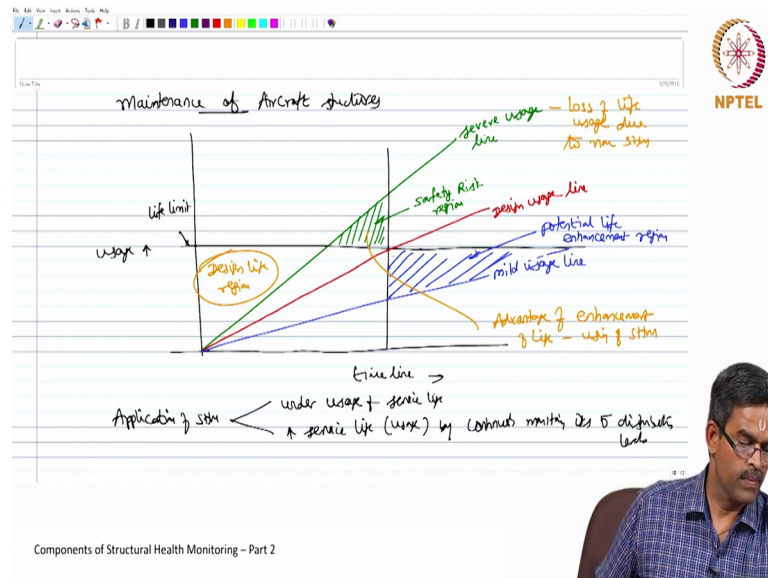 File Edit View Insert Actions Tools Help
B I
Note Title
NPTEL
Maintenance of Aircraft structures
severe usage line
loss of life usage due to non SHM
safety Risk region
Design usage line
Life limit
usage ↑
potential life enhancement region
mild usage line
Design life region
Advantage of enhancement of life - using SHM
time line →
Application of SHM
under usage of service life
↑ service life (usage) by continuous monitoring its
loads
Components of Structural Health Monitoring – Part 2